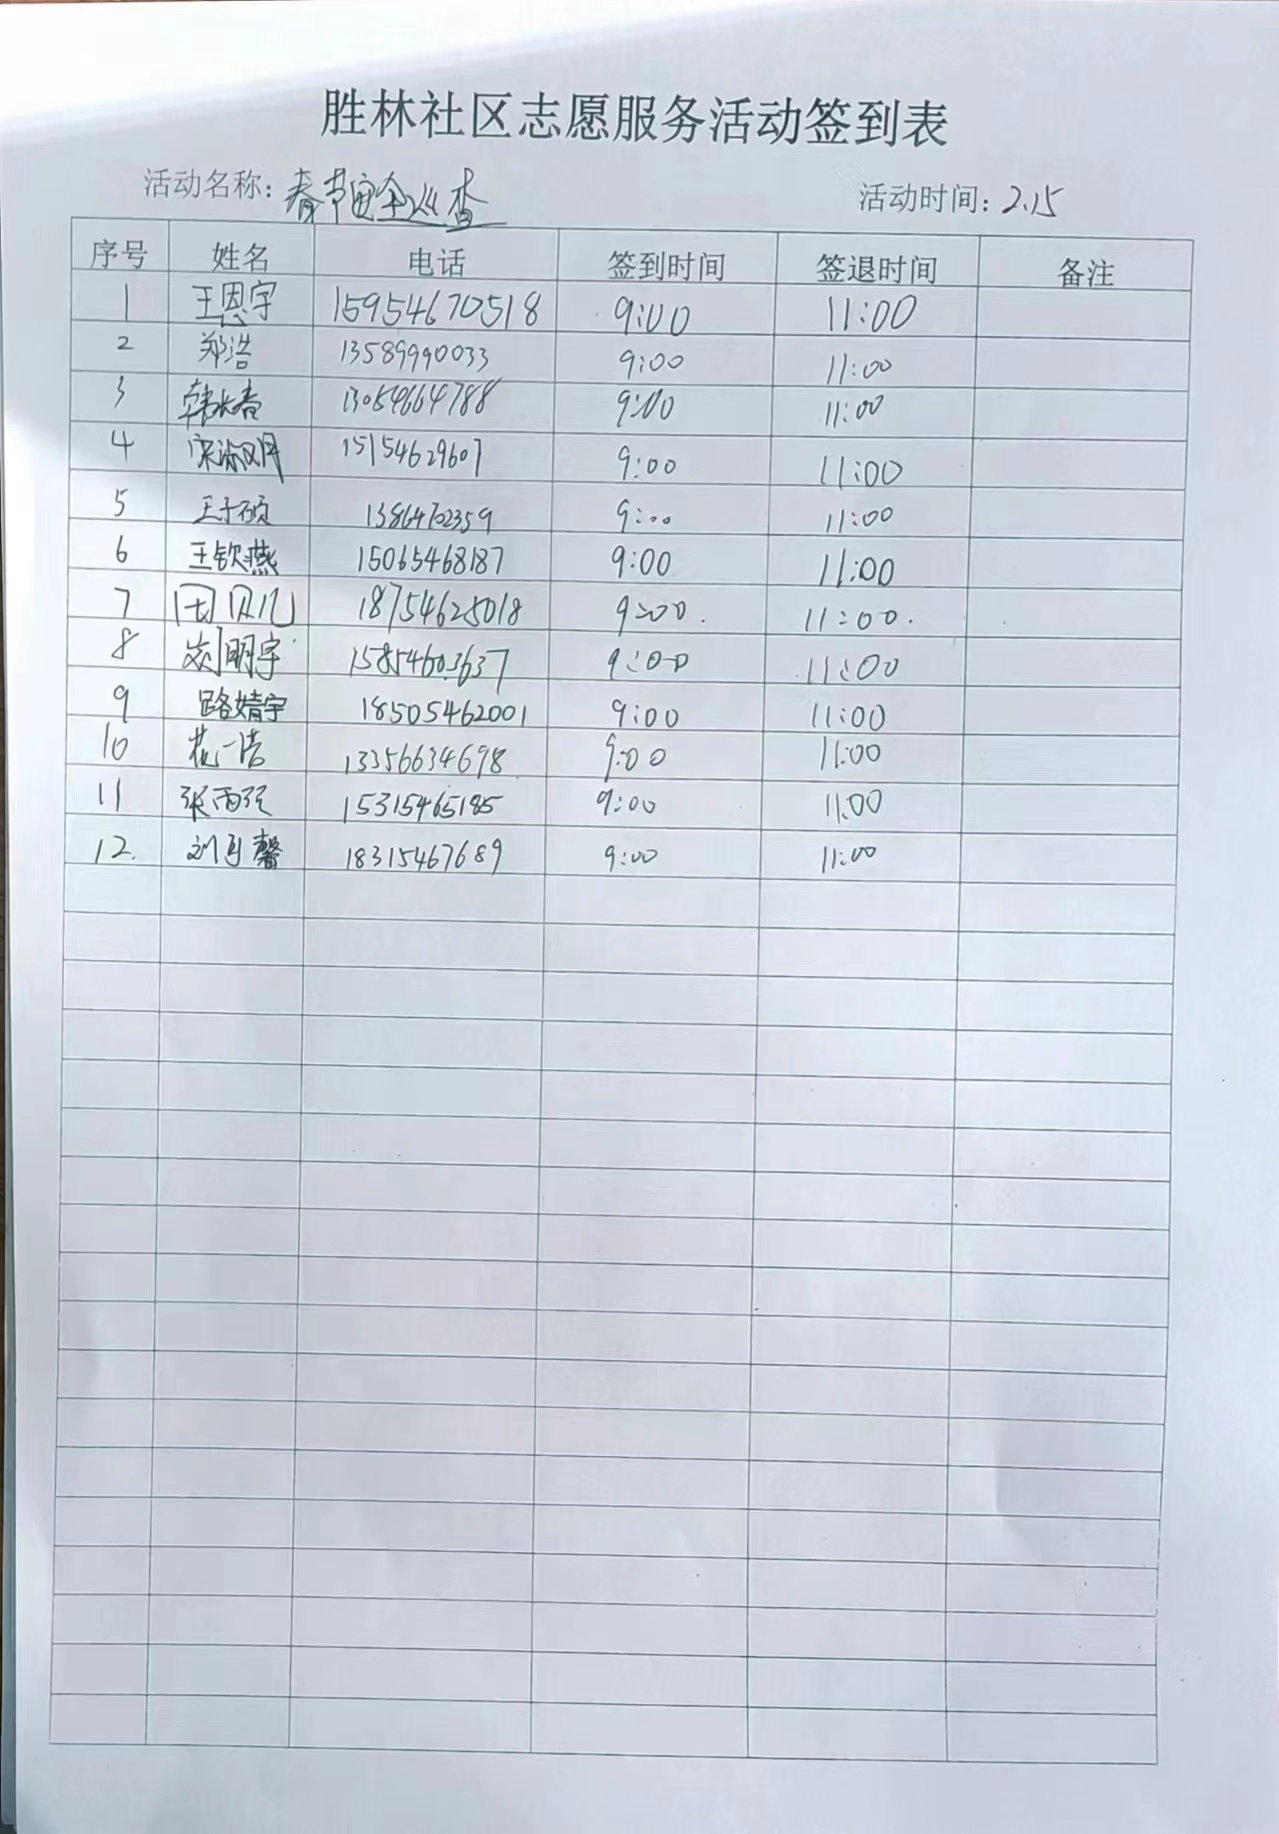 胜林社区志愿服务活动签到表
活动名称: 春节安全巡查 活动时间: 2.15
序号 姓名 电话 签到时间 签退时间 备注
1 王恩宇 15954670518 9:00 11:00
2 郑浩 13589990033 9:00 11:00
3 韩长春 13054664788 9:00 11:00
4 宋淑月 15154629607 9:00 11:00
5 王子硕 9:00 11:00
6 王钦燕 15065468187 9:00 11:00
7 田贝儿 18754625018 9:00. 11:00.
8 刘明宇 15854603637 9:00 11:00
9 路婧宇 18505462001 9:00 11:00
10 花一浩 13356634698 9:00 11:00
11 张雨 15315465185 9:00 11:00
12. 刘 馨 18315467689 9:00 11:00